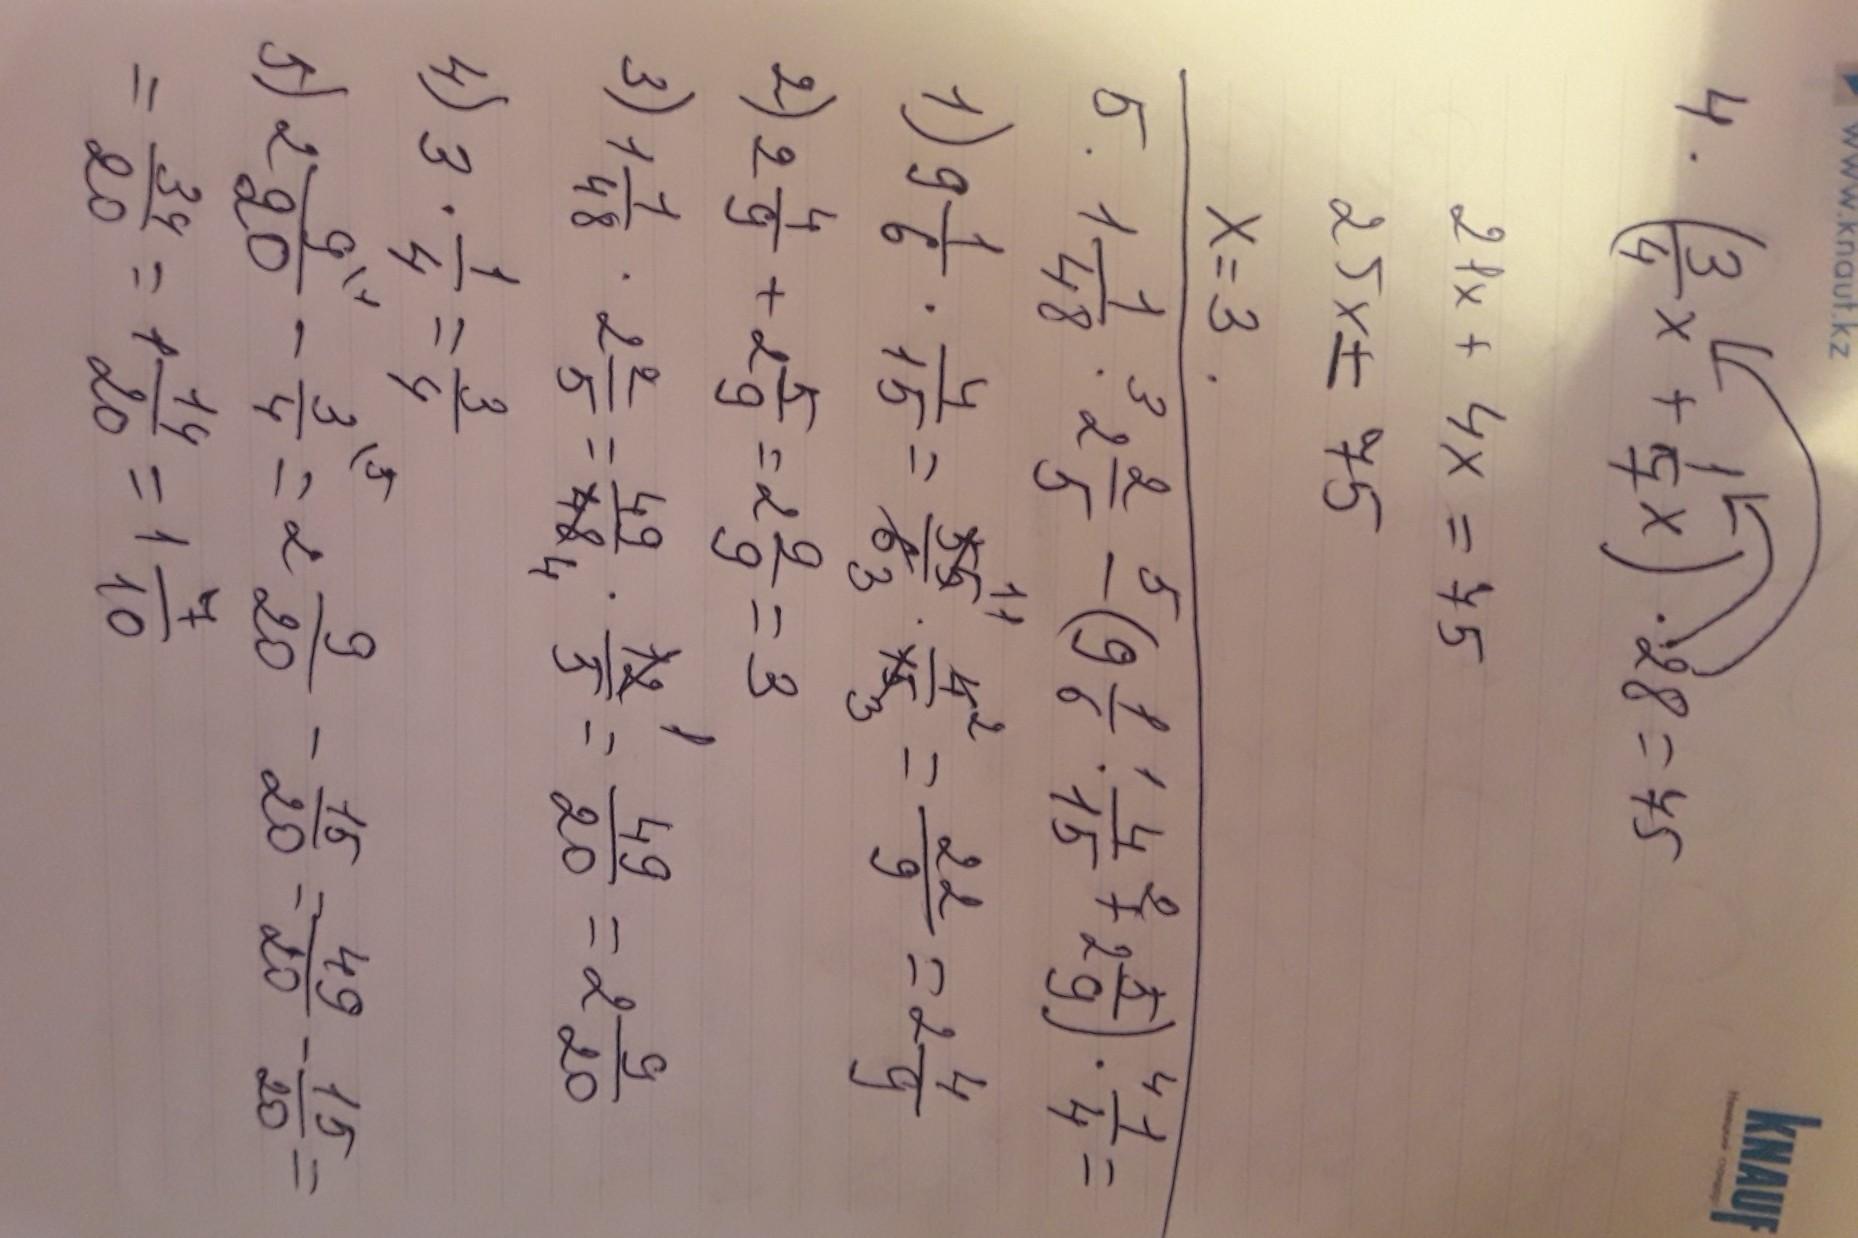 www.knauf.kz
KNAUF
4. (3/4 x + 1/7 x) · 28 = 75
21x + 4x = 75
25x = 75
x = 3.
5. 1 1/48 · 2 2/5 - (9 1/6 · 4/15 + 2 5/9) · 1/4 =
3 5 1 2 4
1) 9 1/6 · 4/15 = 55/6 · 4/15 = 22/9 = 2 4/9
11 2 3 3
2) 2 4/9 + 2 5/9 = 2 9/9 = 3
3) 1 1/48 · 2 2/5 = 49/48 · 12/5 = 49/20 = 2 9/20
1 4
4) 3 · 1/4 = 3/4
5) 2 9/20 \1 - 3/4 \5 = 2 9/20 - 15/20 = 49/20 - 15/20 =
= 34/20 = 1 14/20 = 1 7/10